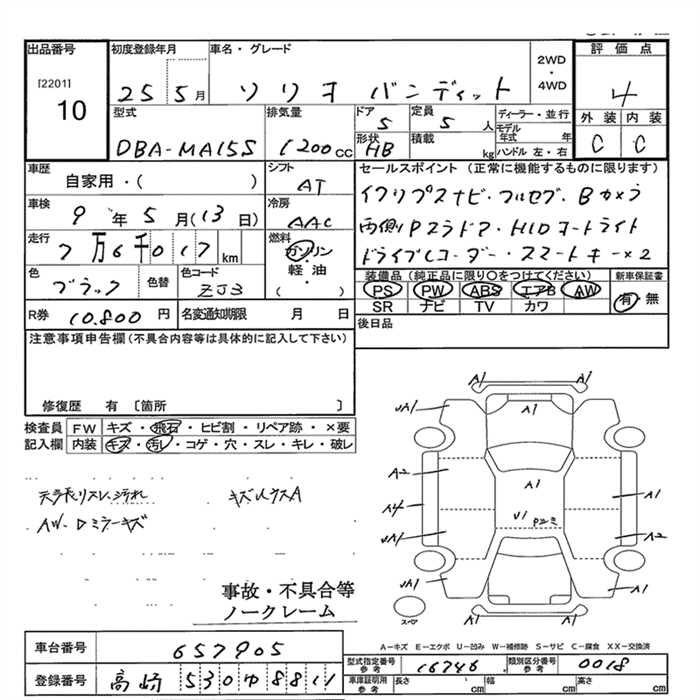 出品番号 初度登録年月 車名・グレード 評価点
[2201]
10
25 5月 ソリオ バンディット 2WD・4WD 4
型式 排気量 ドア 定員 ディーラー・並行 外装 内装
DBA-MA15S 1200cc 5 5人 モデル年式 年 C C
形状 HB 積載 kg ハンドル 左・右
車歴 シフト セールスポイント (正常に機能するものに限ります)
自家用・( ) AT
イクリプスナビ・フルセグ・Bカメラ
車検 冷房
9年5月(13日) AAC
両側Pスラドア・HIDオートライト
走行 燃料
7万6千017km ガソリン・軽油・( )
ドライブレコーダー・スマートキー×2
色 色替 色コード
ブラック ZJ3
装備品 (純正品に限り○をつけてください) 新車保証書
PS PW ABS エアB AW 有・無
SR ナビ TV カワ
R券 10.800円 名変通知期限 月 日
後日品
注意事項申告欄(不具合内容等は具体的に記入して下さい)
修復歴 有 〔箇所 〕
検査員 FW キズ・飛石・ヒビ割・リペア跡・×要
記入欄 内装 キズ・汚レ・コゲ・穴・スレ・キレ・破レ
天張リスレ、汚れ キズハウスA
AW・Dミラーキズ
A1 A1
UA1 A1
A2
A1
A4 A1
U1 Pコミ
UA1 A2
UA1 A1
スペア
事故・不具合等
ノークレーム
A-キズ E-エクボ U-凹み W-補修跡 S-サビ C-腐食 XX-交換済
車台番号 657905
型式指定番号 参考 16746 類別区分番号 参考 0018
登録番号 高崎 530ゆ8811
車庫証明用 参考 長さ cm 幅 cm 高さ cm